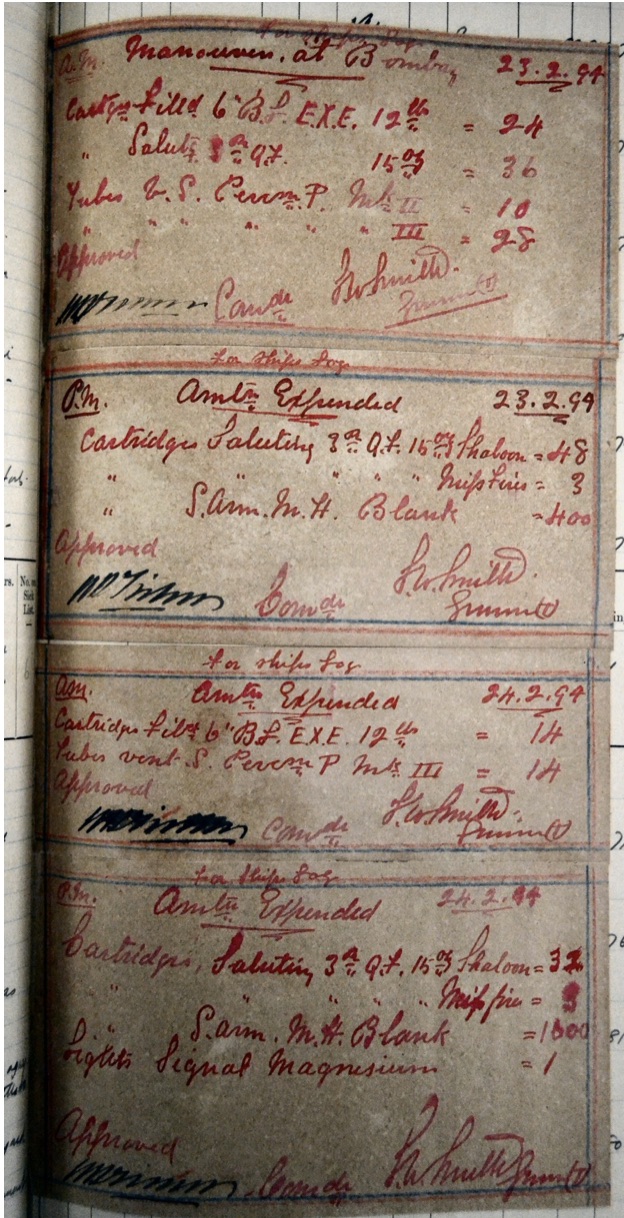 For Ships Log
A.M. Manouvers. at Bombay 23.2.94
Cartges Filld 6" B.L. E.X.E. 12 lb = 24
" Salutg 3 Pr Q.F. 15 oz = 36
Tubes V.S. Percn P. Mk II = 10
" " " " " III = 28
Approved
Comdr S.W. Smith.
Gunner (T)
For Ships Log
P.M. Amtn Expended 23.2.94
Cartridges Saluting 3 Pr Q.F. 15 oz Shaloon = 48
" " " " Missfires = 3
" S. Arm. M.H. Blank = 400
Approved
Comdr S.W. Smith.
Gunner (T)
For Ships Log
A.M. Amtn Expended 24.2.94
Cartridges Filld 6" B.L. E.X.E. 12 lb = 14
Tubes vent. S. Percn P Mk III = 14
Approved
Comdr S.W. Smith.
Gunner (T)
For Ships Log
P.M. Amtn Expended 24.2.94
Cartridges, Saluting 3 Pr Q.F. 15 oz Shaloon = 32
" " " " Missfire = 3
" S. Arm. M.H. Blank =
Lights Signal Magnesium = 1
Approved
Comdr S.W. Smith Gunner (T)
rs. No. on
Sick
List.